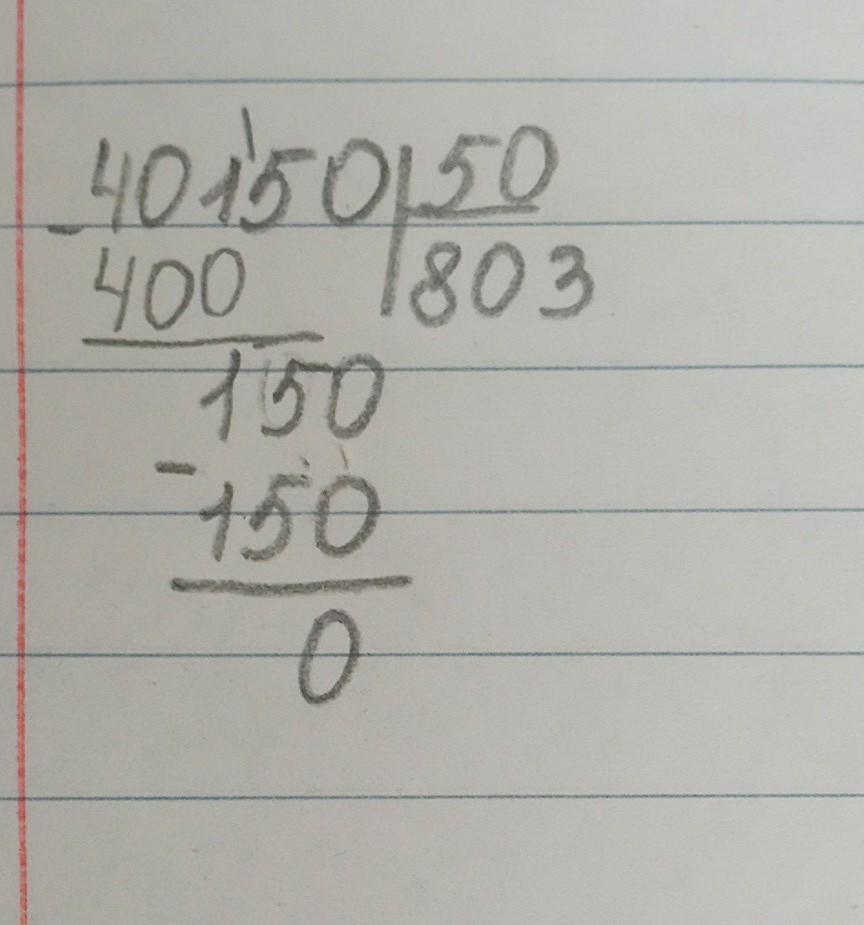 40150 50
- 400 803
150
- 150
0